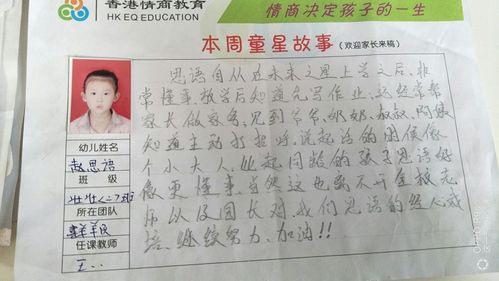 香港情商教育
HK EQ EDUCATION
情商决定孩子的一生
本周童星故事(欢迎家长来稿)
思语自从在未来之星上学之后,非
常懂事,放学后知道先写作业,还经常帮
家长做家务,见到爷爷、奶奶、叔叔、阿姨
知道主动打招呼,说起话的时候像
个小大人,比起同龄的孩子思语好
像更懂事,当然这也离不开全校老
师以及园长对我们思语的
培,继续努力、加油!!
幼儿姓名
赵思语
班 级
所在团队
任课教师
王